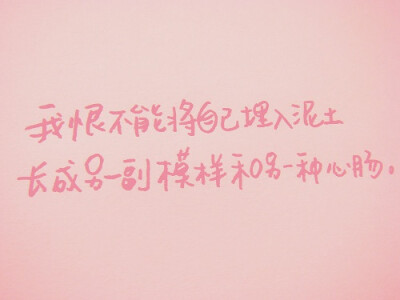 我恨不能将自己埋入泥土
长成另一副模样和另一种心肠。